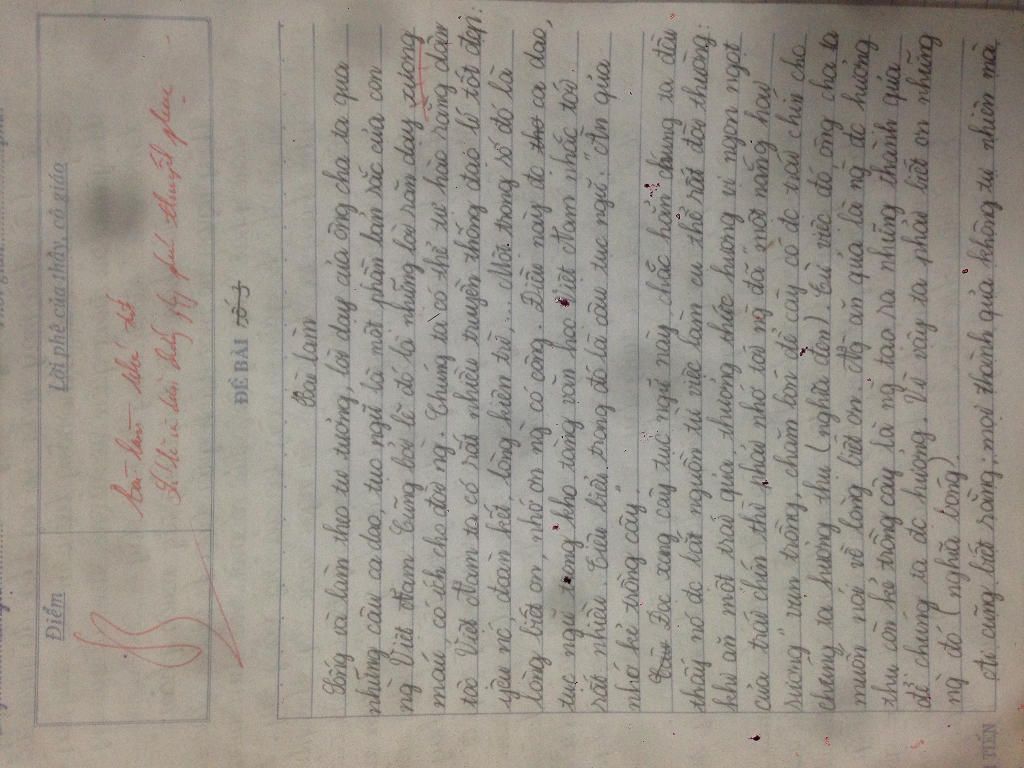 Điểm
Lời phê của thầy, cô giáo
ĐỀ BÀI
Bài làm
Sống và làm theo tư tưởng, lời dạy của ông cha ta qua
những câu ca dao, tục ngữ là nét phần bản sắc của con
ng Việt Nam. Cũng bởi lẽ đó là những lời răn dạy xương
máu có ích cho đời ng. Chúng ta có thể tự hào rằng dân
tộc Việt Nam ta có rất nhiều truyền thống đạo lí tốt đẹp:
yêu nc, đoàn kết, lòng kiên trì,... Một trong số đó là
lòng biết ơn, nhớ ơn ng có công. Điều này đc thơ ca dao,
tục ngữ trong kho tàng văn học Việt Nam nhắc tới
rất nhiều. Tiêu biểu trong đó là câu tục ngữ: "Ăn quả
nhớ kẻ trồng cây".
Đọc xong câu tục ngữ này, chắc hẳn chúng ta đều
thấy nó đc bắt nguồn từ việc làm cụ thể rất đời thường:
khi ăn một trái quả, thưởng thức hương vị ngon ngọt
của trái chín thì phải nhớ tới ng đã "một nắng hai
sương" vun trồng, chăm bón để cây có đc trái chín cho
chúng ta hưởng thụ (nghĩa đen). Từ việc đó ông cha ta
muốn nói về lòng biết ơn. Ng ăn quả là ng đc hưởng
thụ còn kẻ trồng cây là ng tạo ra những thành quả
để chúng ta đc hưởng. Vì vậy ta phải biết ơn những
ng đó (nghĩa bóng)
cũng biết rằng, mọi thành quả không tự nhiên mà
TIẾN